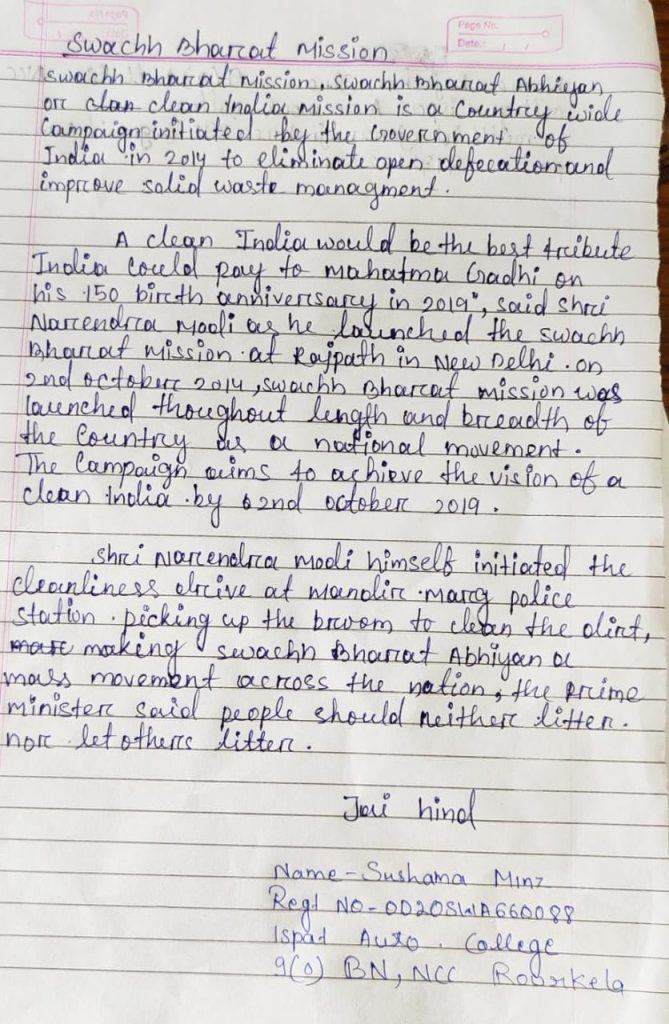 Page No.
Date.: / /
Swachh Bharat Mission
Swachh Bharat Mission, Swachh Bharat Abhiyan
or clan clean India Mission is a Country wide
Campaign initiated by the Government of
India in 2014 to eliminate open defecation and
improve solid waste managment.
A clean India would be the best tribute
India could pay to Mahatma Gadhi on
his 150 birth anniversary in 2019", said Shri
Narendra Modi as he launched the Swachh
Bharat Mission at Rajpath in New Delhi. on
2nd october 2014, swachh Bharat mission was
launched thoughout length and breadth of
the Country as a national movement.
The Campaign aims to achieve the vision of a
clean India by 2nd october 2019.
Shri Narendra Modi himself initiated the
cleanliness drive at Mandir Marg police
station. picking up the broom to clean the dirt,
making swachh Bharat Abhiyan a
mass movement across the nation, the prime
minister said people should neither litter.
nor let others litter.
Jai hind
Name - Sushama Minz
Regt NO - OD20SWA660088
Ispat Auto. College
9(O) BN, NCC Rourkela